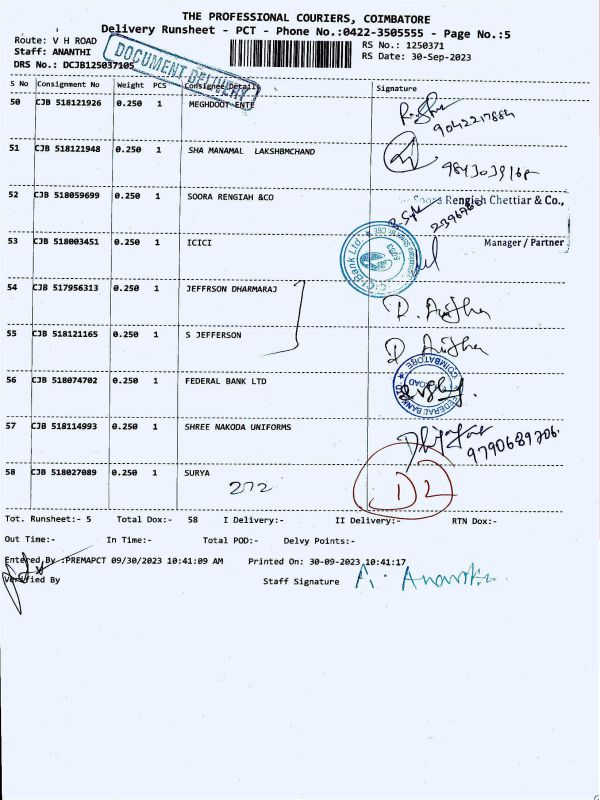 THE PROFESSIONAL COURIERS, COIMBATORE
Delivery Runsheet - PCT - Phone No.:0422-3505555 - Page No.:5
Route: V H ROAD
RS No.: 1250371
Staff: ANANTHI
RS Date: 30-Sep-2023
DRS No.: DCJB125037105
DOCUMENT DELIVERY
S No Consignment No Weight PCS Consignee Details Signature
50 CJB 518121926 0.250 1 MEGHDOOT ENTE
9042217884
51 CJB 518121948 0.250 1 SHA MANAMAL LAKSHBMCHAND
52 CJB 518059699 0.250 1 SOORA RENGIAH &CO
Soora Rengiah Chettiar & Co.,
Manager / Partner
53 CJB 518003451 0.250 1 ICICI
54 CJB 517956313 0.250 1 JEFFRSON DHARMARAJ
55 CJB 518121165 0.250 1 S JEFFERSON
56 CJB 518074702 0.250 1 FEDERAL BANK LTD
FEDERAL BANK LTD COIMBATORE
57 CJB 518114993 0.250 1 SHREE NAKODA UNIFORMS
9790689706.
58 CJB 518027089 0.250 1 SURYA
272
D2
Tot. Runsheet:- 5 Total Dox:- 58 I Delivery:- II Delivery:- RTN Dox:-
Out Time:- In Time:- Total POD:- Delvy Points:-
Entered By :PREMAPCT 09/30/2023 10:41:09 AM Printed On: 30-09-2023 10:41:17
Verified By Staff Signature